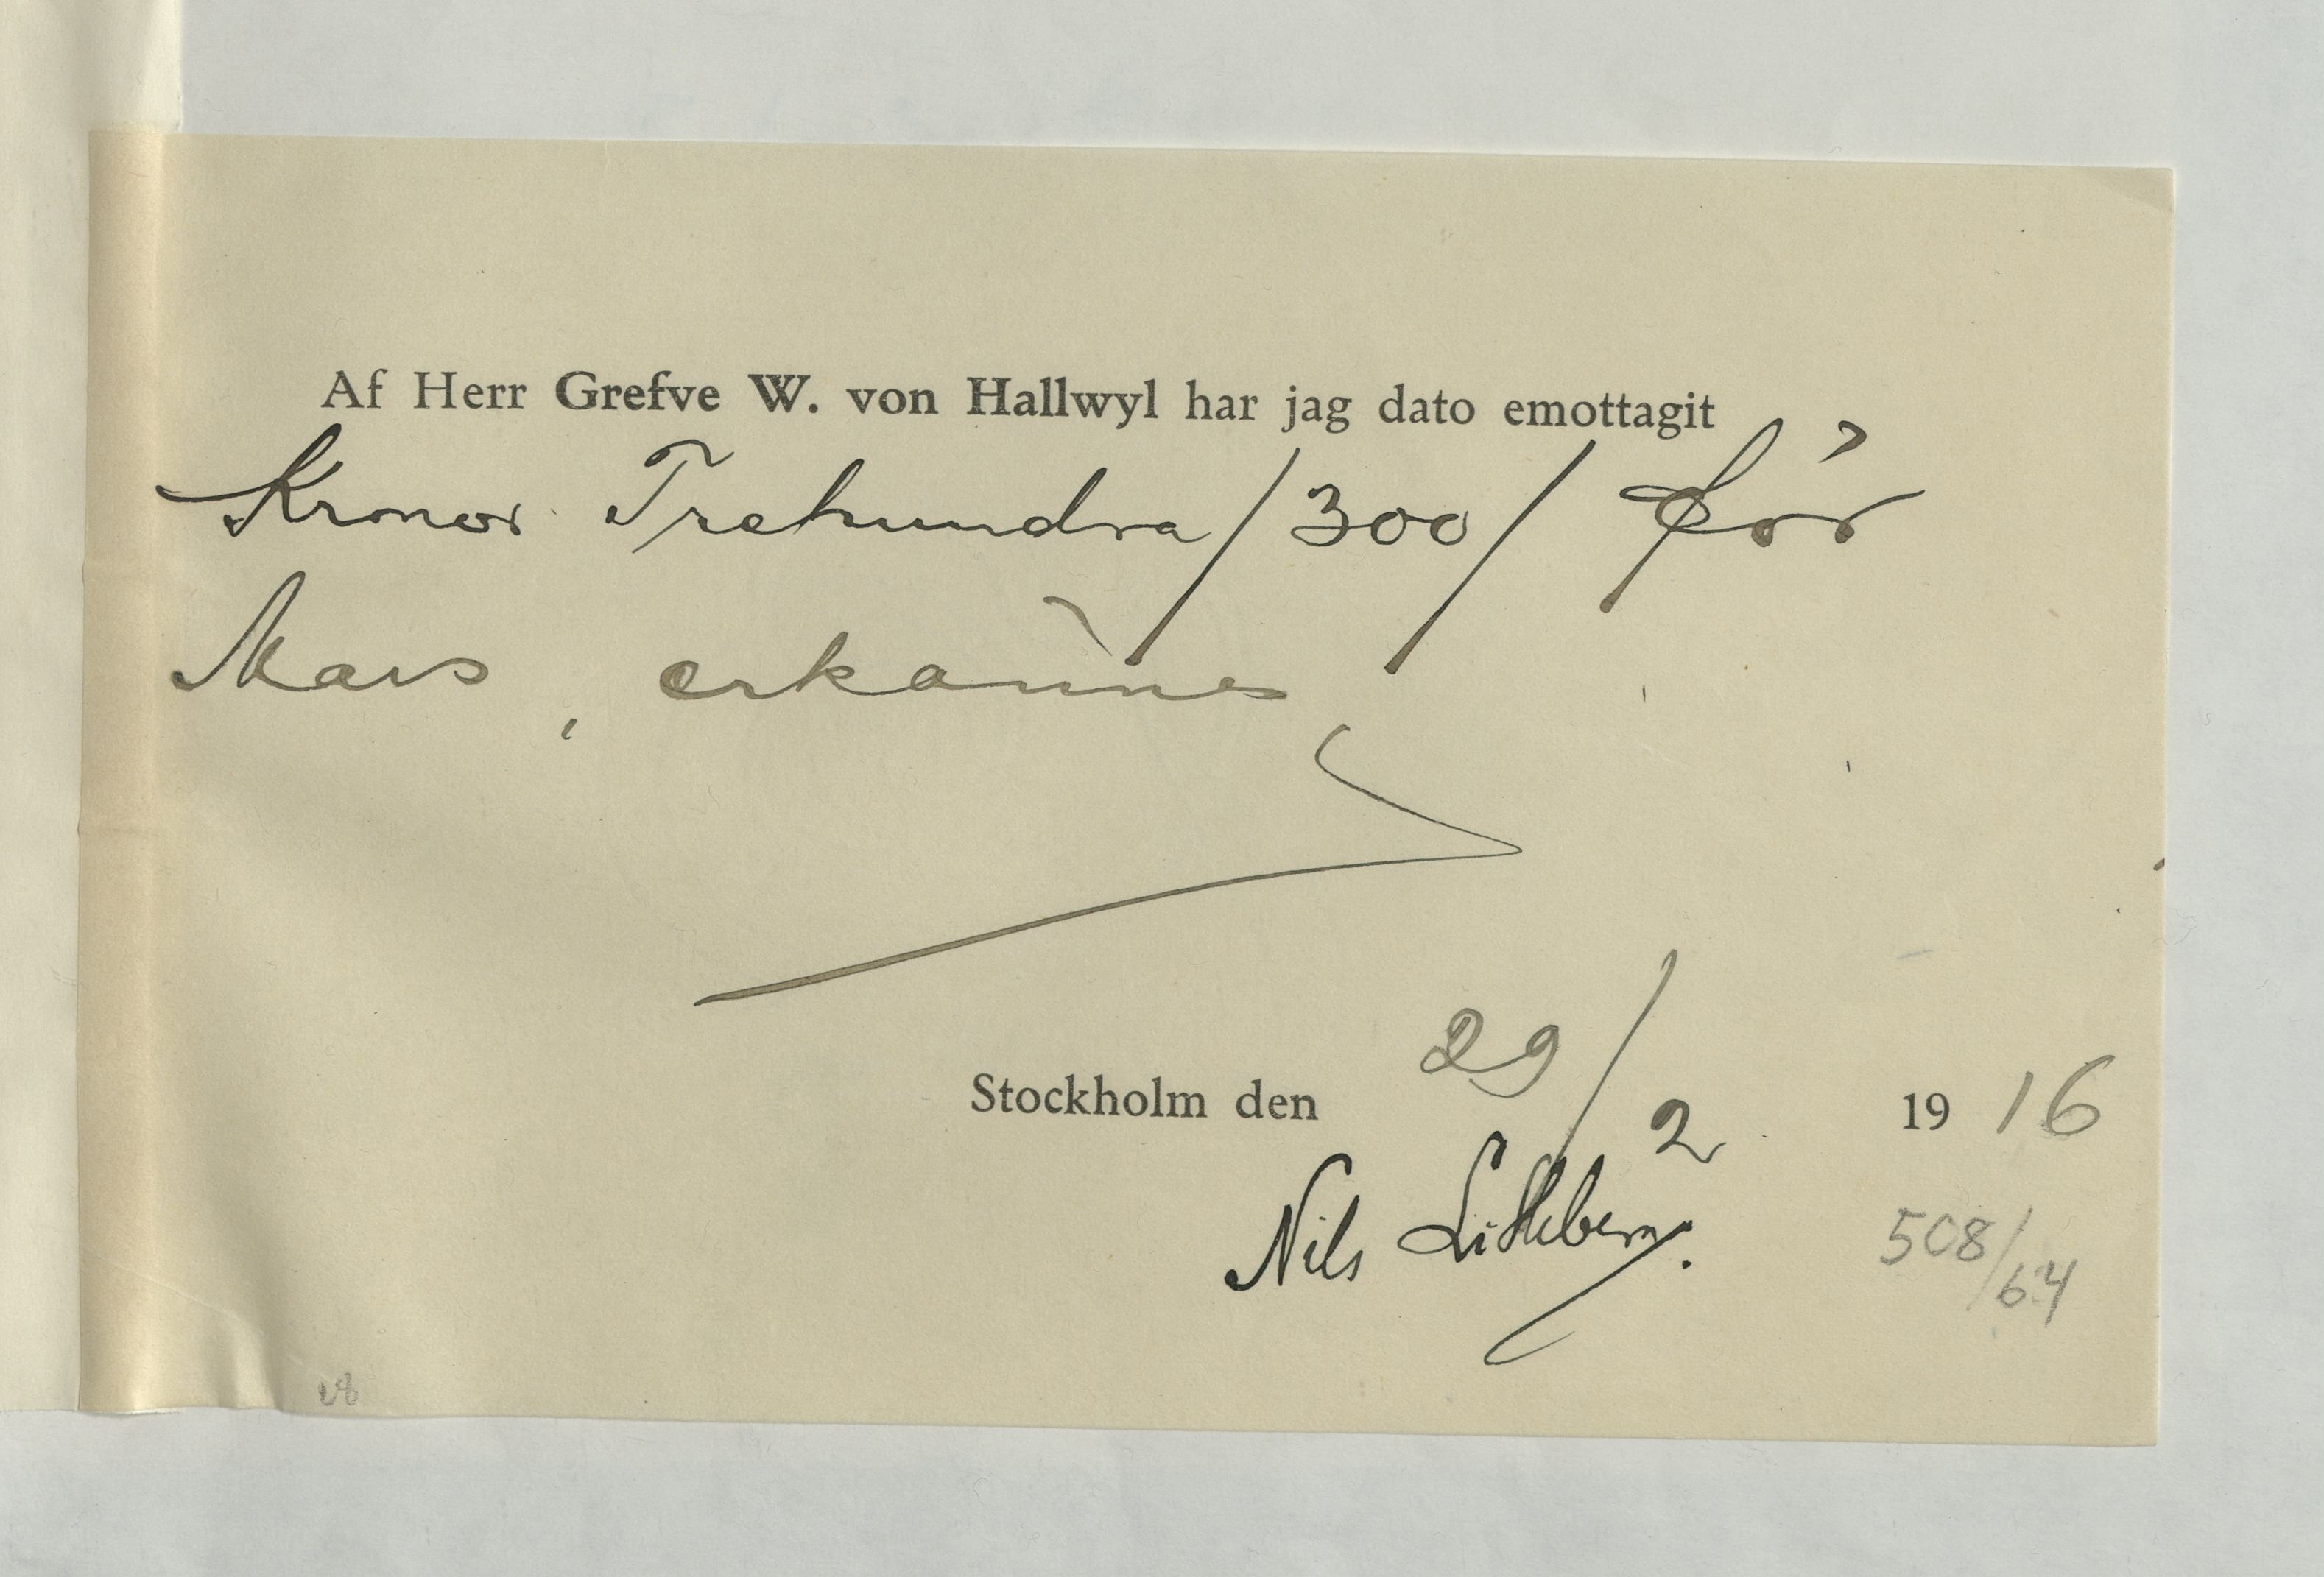 Af Herr Grefve W. von Hallwyl har jag dato emottagit
Kronor Trehundra /300/ för
Mars, erkännes
Stockholm den 29/2 1916
Nils Lithberg.
508/64
28